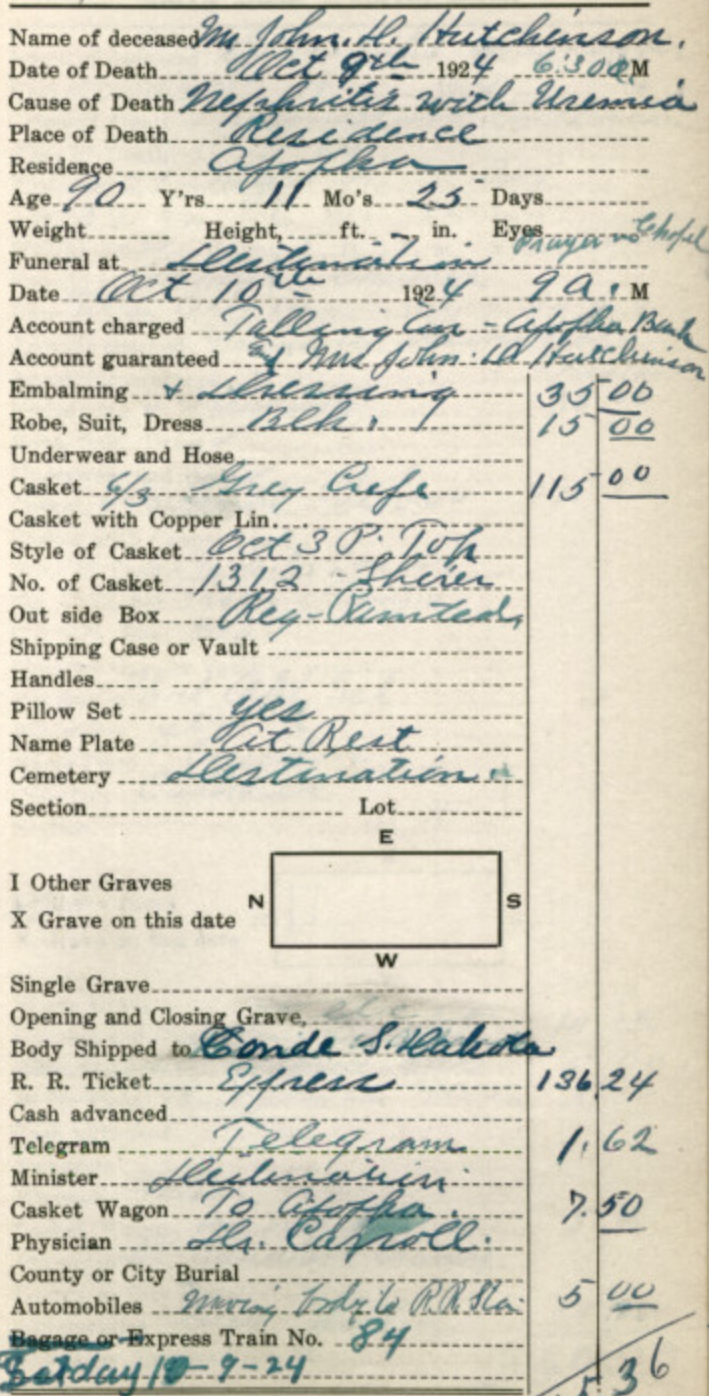 Name of deceased Mr John. H. Hutchinson.
Date of Death Oct 9th 1924 6:30 a M
Cause of Death Nephritis with Uremia
Place of Death Residence
Residence Apopka
Age 90 Y'rs 11 Mo's 25 Days
Weight Height, ft. in. Eyes Prayer Chapel
Funeral at Destination
Date Oct 10th 1924 9 a. M
Account charged - Apopka Bank
Account guaranteed Mrs John. H Hutchinson
Embalming & Dressing 35 00
Robe, Suit, Dress Blk. 15 00
Underwear and Hose
Casket 6/3 Grey Crepe 115 00
Casket with Copper Lin.
Style of Casket Oct 3 P. Top
No. of Casket 1312 -
Out side Box Reg-
Shipping Case or Vault
Handles
Pillow Set yes
Name Plate At Rest
Cemetery Destination
Section Lot
E
I Other Graves
N S
X Grave on this date
W
Single Grave
Opening and Closing Grave,
Body Shipped to Conde S. Dakota
R. R. Ticket Express 136 24
Cash advanced
Telegram Telegram 1. 62
Minister Destination
Casket Wagon To Apopka. 7. 50
Physician Dr. Carroll.
County or City Burial
Automobiles moving body to R.R Sta. 5 00
Bagage or Express Train No. 84
10-9-24